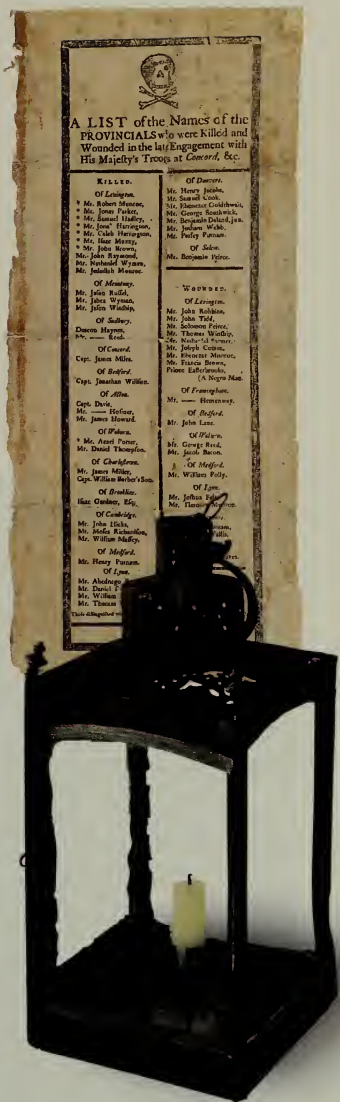 A LIST of the Names of the
PROVINCIALS who were Killed and
Wounded in the late Engagement with
His Majesty's Troops at Concord, &c.
KILLED.
Of Lexington.
* Mr. Robert Munroe,
* Mr. Jonas Parker,
* Mr. Samuel Hadley,
* Mr. Jonaⁿ Harrington,
* Mr. Caleb Harrington,
* Mr. Isaac Muzzy,
* Mr. John Brown,
Mr. John Raymond,
Mr. Nathaniel Wyman,
Mr. Jedediah Munroe.
Of Menotomy.
Mr. Jason Russel,
Mr. Jabez Wyman,
Mr. Jason Winship,
Of Sudbury.
Deacon Haynes,
Mr. —— Reed.
Of Concord.
Capt. James Miles.
Of Bedford.
Capt. Jonathan Willson.
Of Acton.
Capt. Davis,
Mr. —— Hosmer,
Mr. James Howard.
Of Woburn.
* Mr. Azael Porter,
Mr. Daniel Thompson.
Of Charlestown.
Mr. James Miller,
Capt. William Barber's Son.
Of Brookline.
Isaac Gardner, Esq;
Of Cambridge.
Mr. John Hicks,
Mr. Moses Richardson,
Mr. William Massey.
Of Medford.
Mr. Henry Putnam.
Of Lynn.
Mr. Abednego
Mr. Daniel
Mr. William
Mr. Thomas
Those distinguished
Of Danvers.
Mr. Henry Jacobs,
Mr. Samuel Cook,
Mr. Ebenezer Goldthwait,
Mr. George Southwick,
Mr. Benjamin Daland, jun.
Mr. Jotham Webb,
Mr. Perley Putnam.
Of Salem.
Mr. Benjamin Peirce.
WOUNDED.
Of Lexington.
Mr. John Robbins,
Mr. John Tidd,
Mr. Solomon Peirce,
Mr. Thomas Winship,
Mr. Nathaniel Farmer,
Mr. Joseph Comee,
Mr. Ebenezer Munroe,
Mr. Francis Brown,
Prince Easterbrooks,
(A Negro Man.
Of Framingham.
Mr. —— Hemenway.
Of Bedford.
Mr. John Lane.
Of Woburn.
Mr. George Reed,
Mr. Jacob Bacon.
Of Medford.
Mr. William Polly.
Of Lynn.
Mr. Joshua
Mr. Timothy